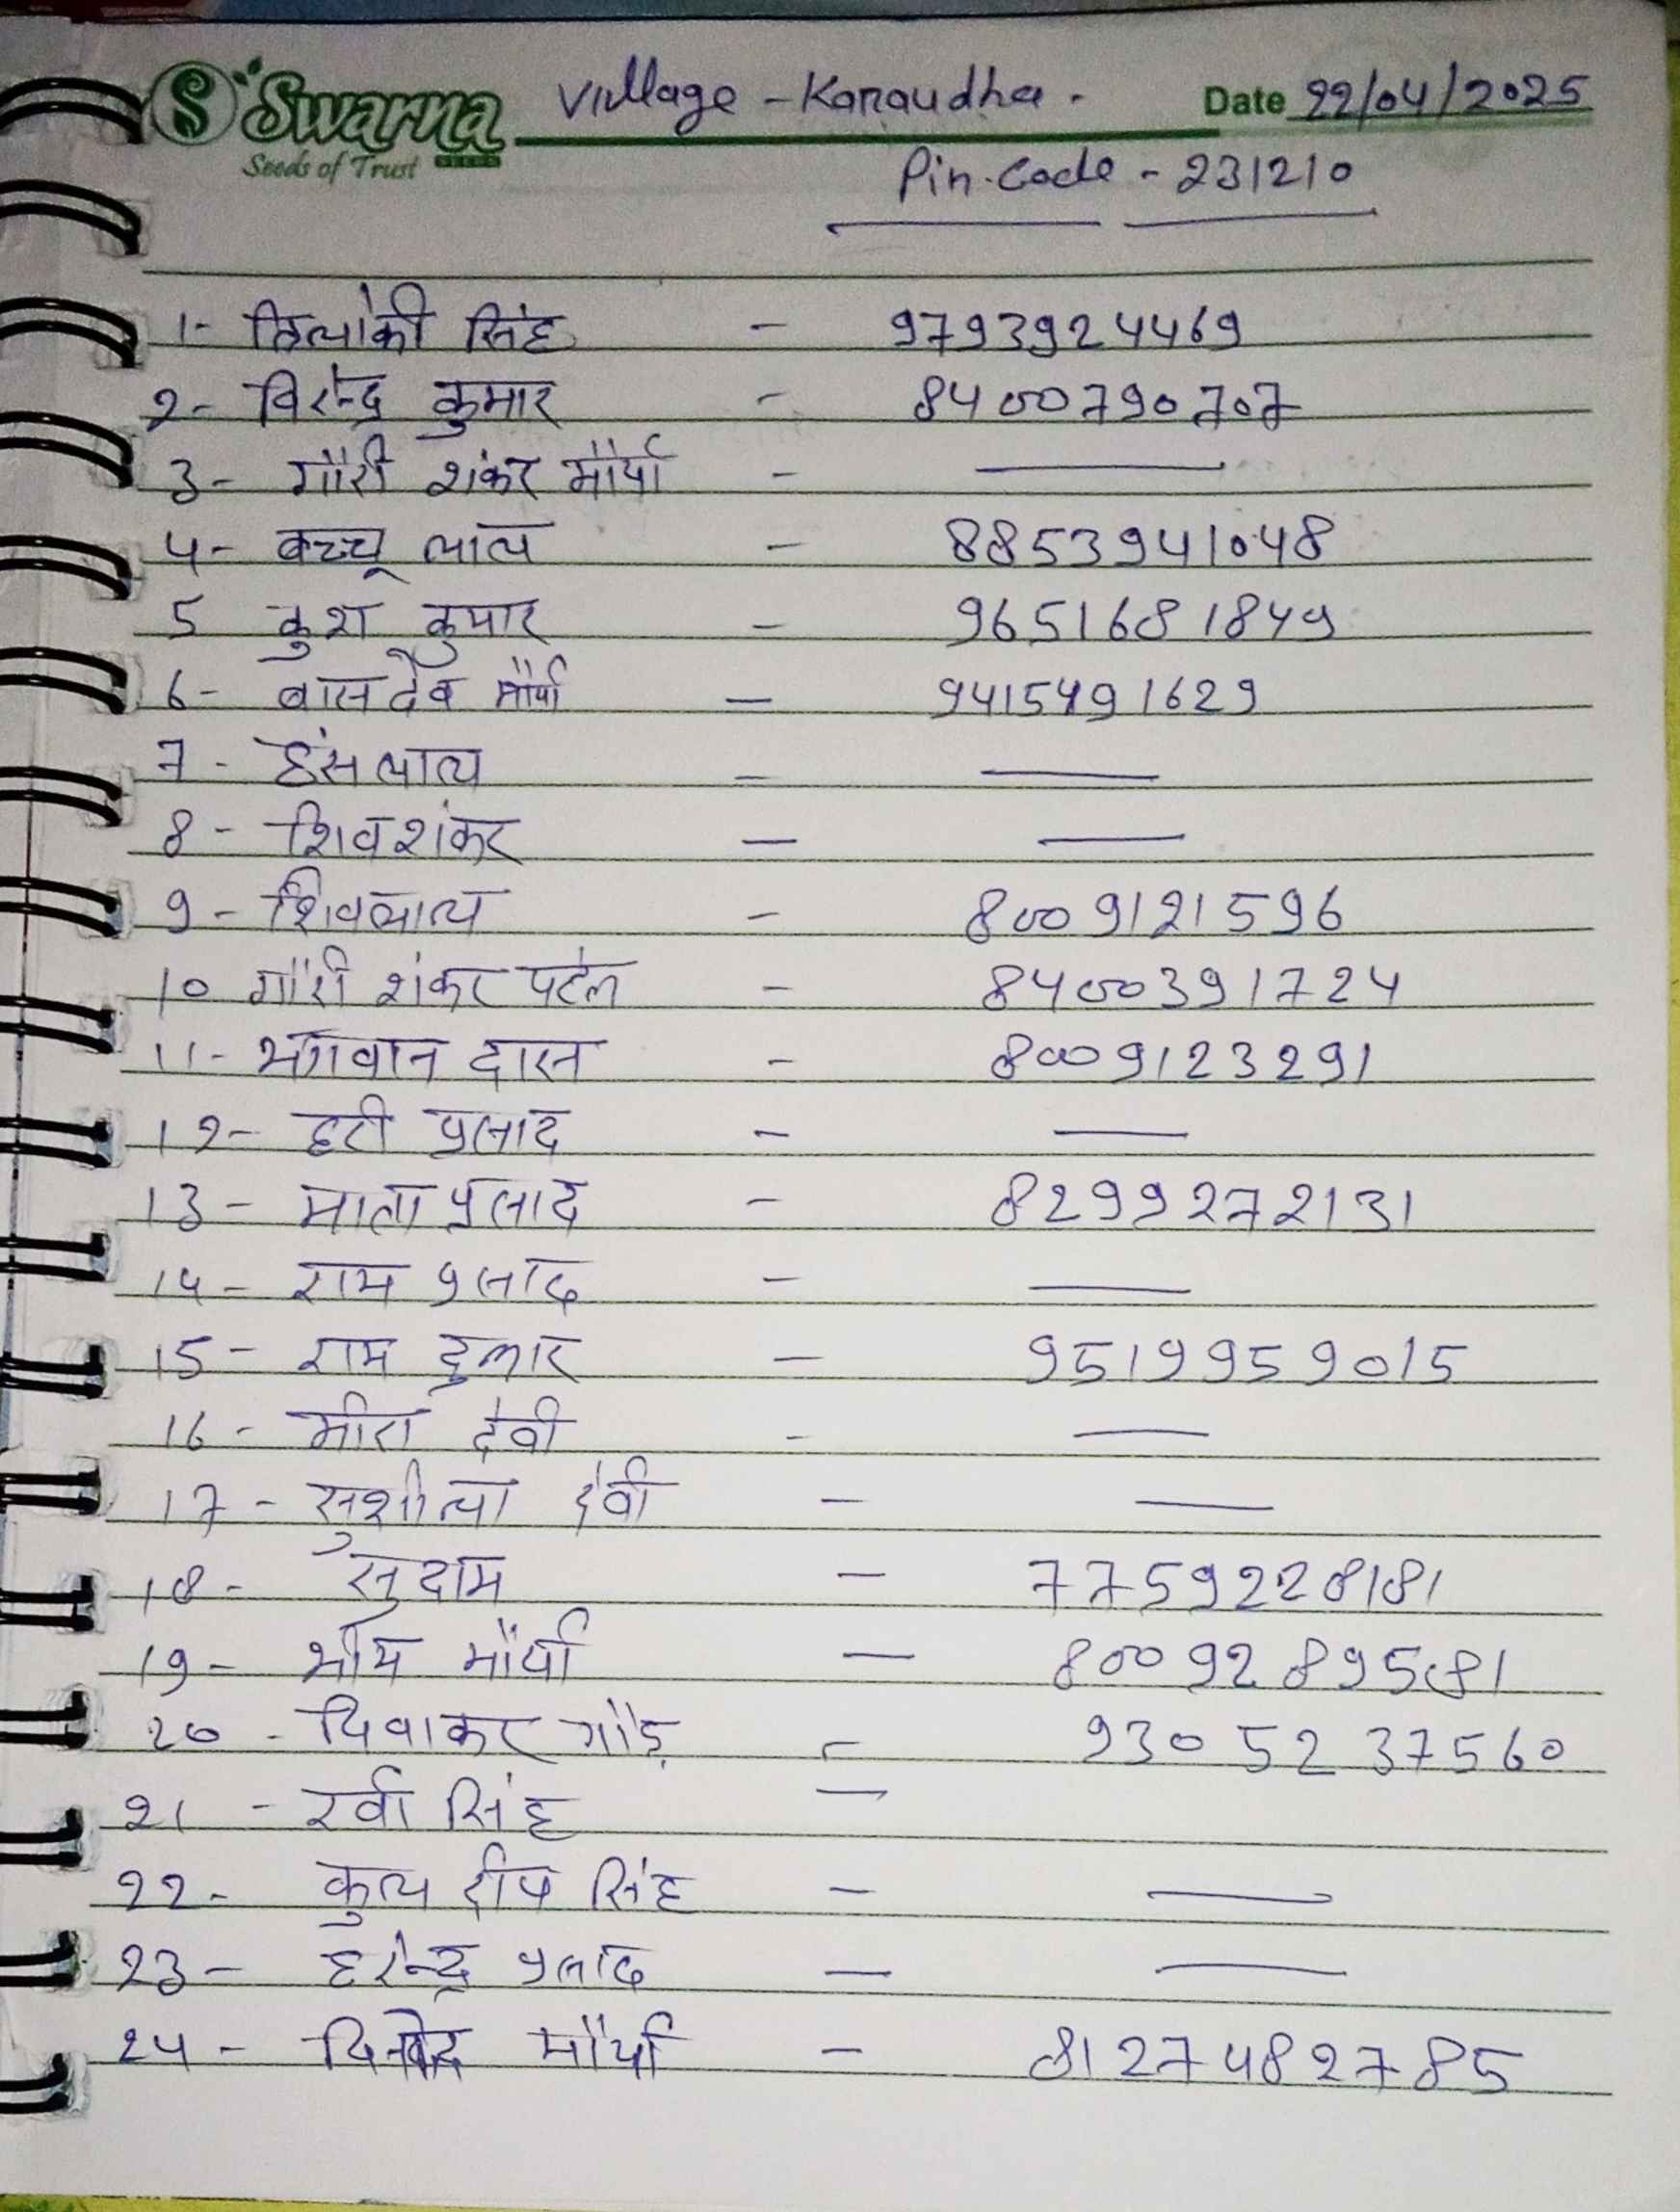 S Swarna Village - Karaudha. Date 22/04/2025
Seeds of Trust SEEDS
Pin. Code - 231210
1- त्रिलोकी सिंह - 9793924469
2- विरेन्द्र कुमार - 8400790707
3- गौरी शंकर मौर्या - ——
4- बच्चू लाल - 8853941048
5 कुश कुमार - 9651681849
6- बासदेव मौर्या - 9415491629
7- हंसलाल - ——
8- शिवशंकर - ——
9- शिवलाल - 8009121596
10 गौरी शंकर पटेल - 8400391724
11- भगवान दास - 8009123291
12- हरी प्रसाद - ——
13- माता प्रसाद - 8299272131
14- राम प्रसाद - ——
15- राम दुलार - 9519959015
16- मीरा देवी - ——
17- सुशीला देवी - ——
18- सुदाम - 7759228181
19- भीम मौर्या - 8009289581
20- दिवाकर गौड़ - 9305237560
21- रवी सिंह -
22- कुलदीप सिंह - ——
23- हरेन्द्र प्रसाद - ——
24- मौर्या - 8127482785